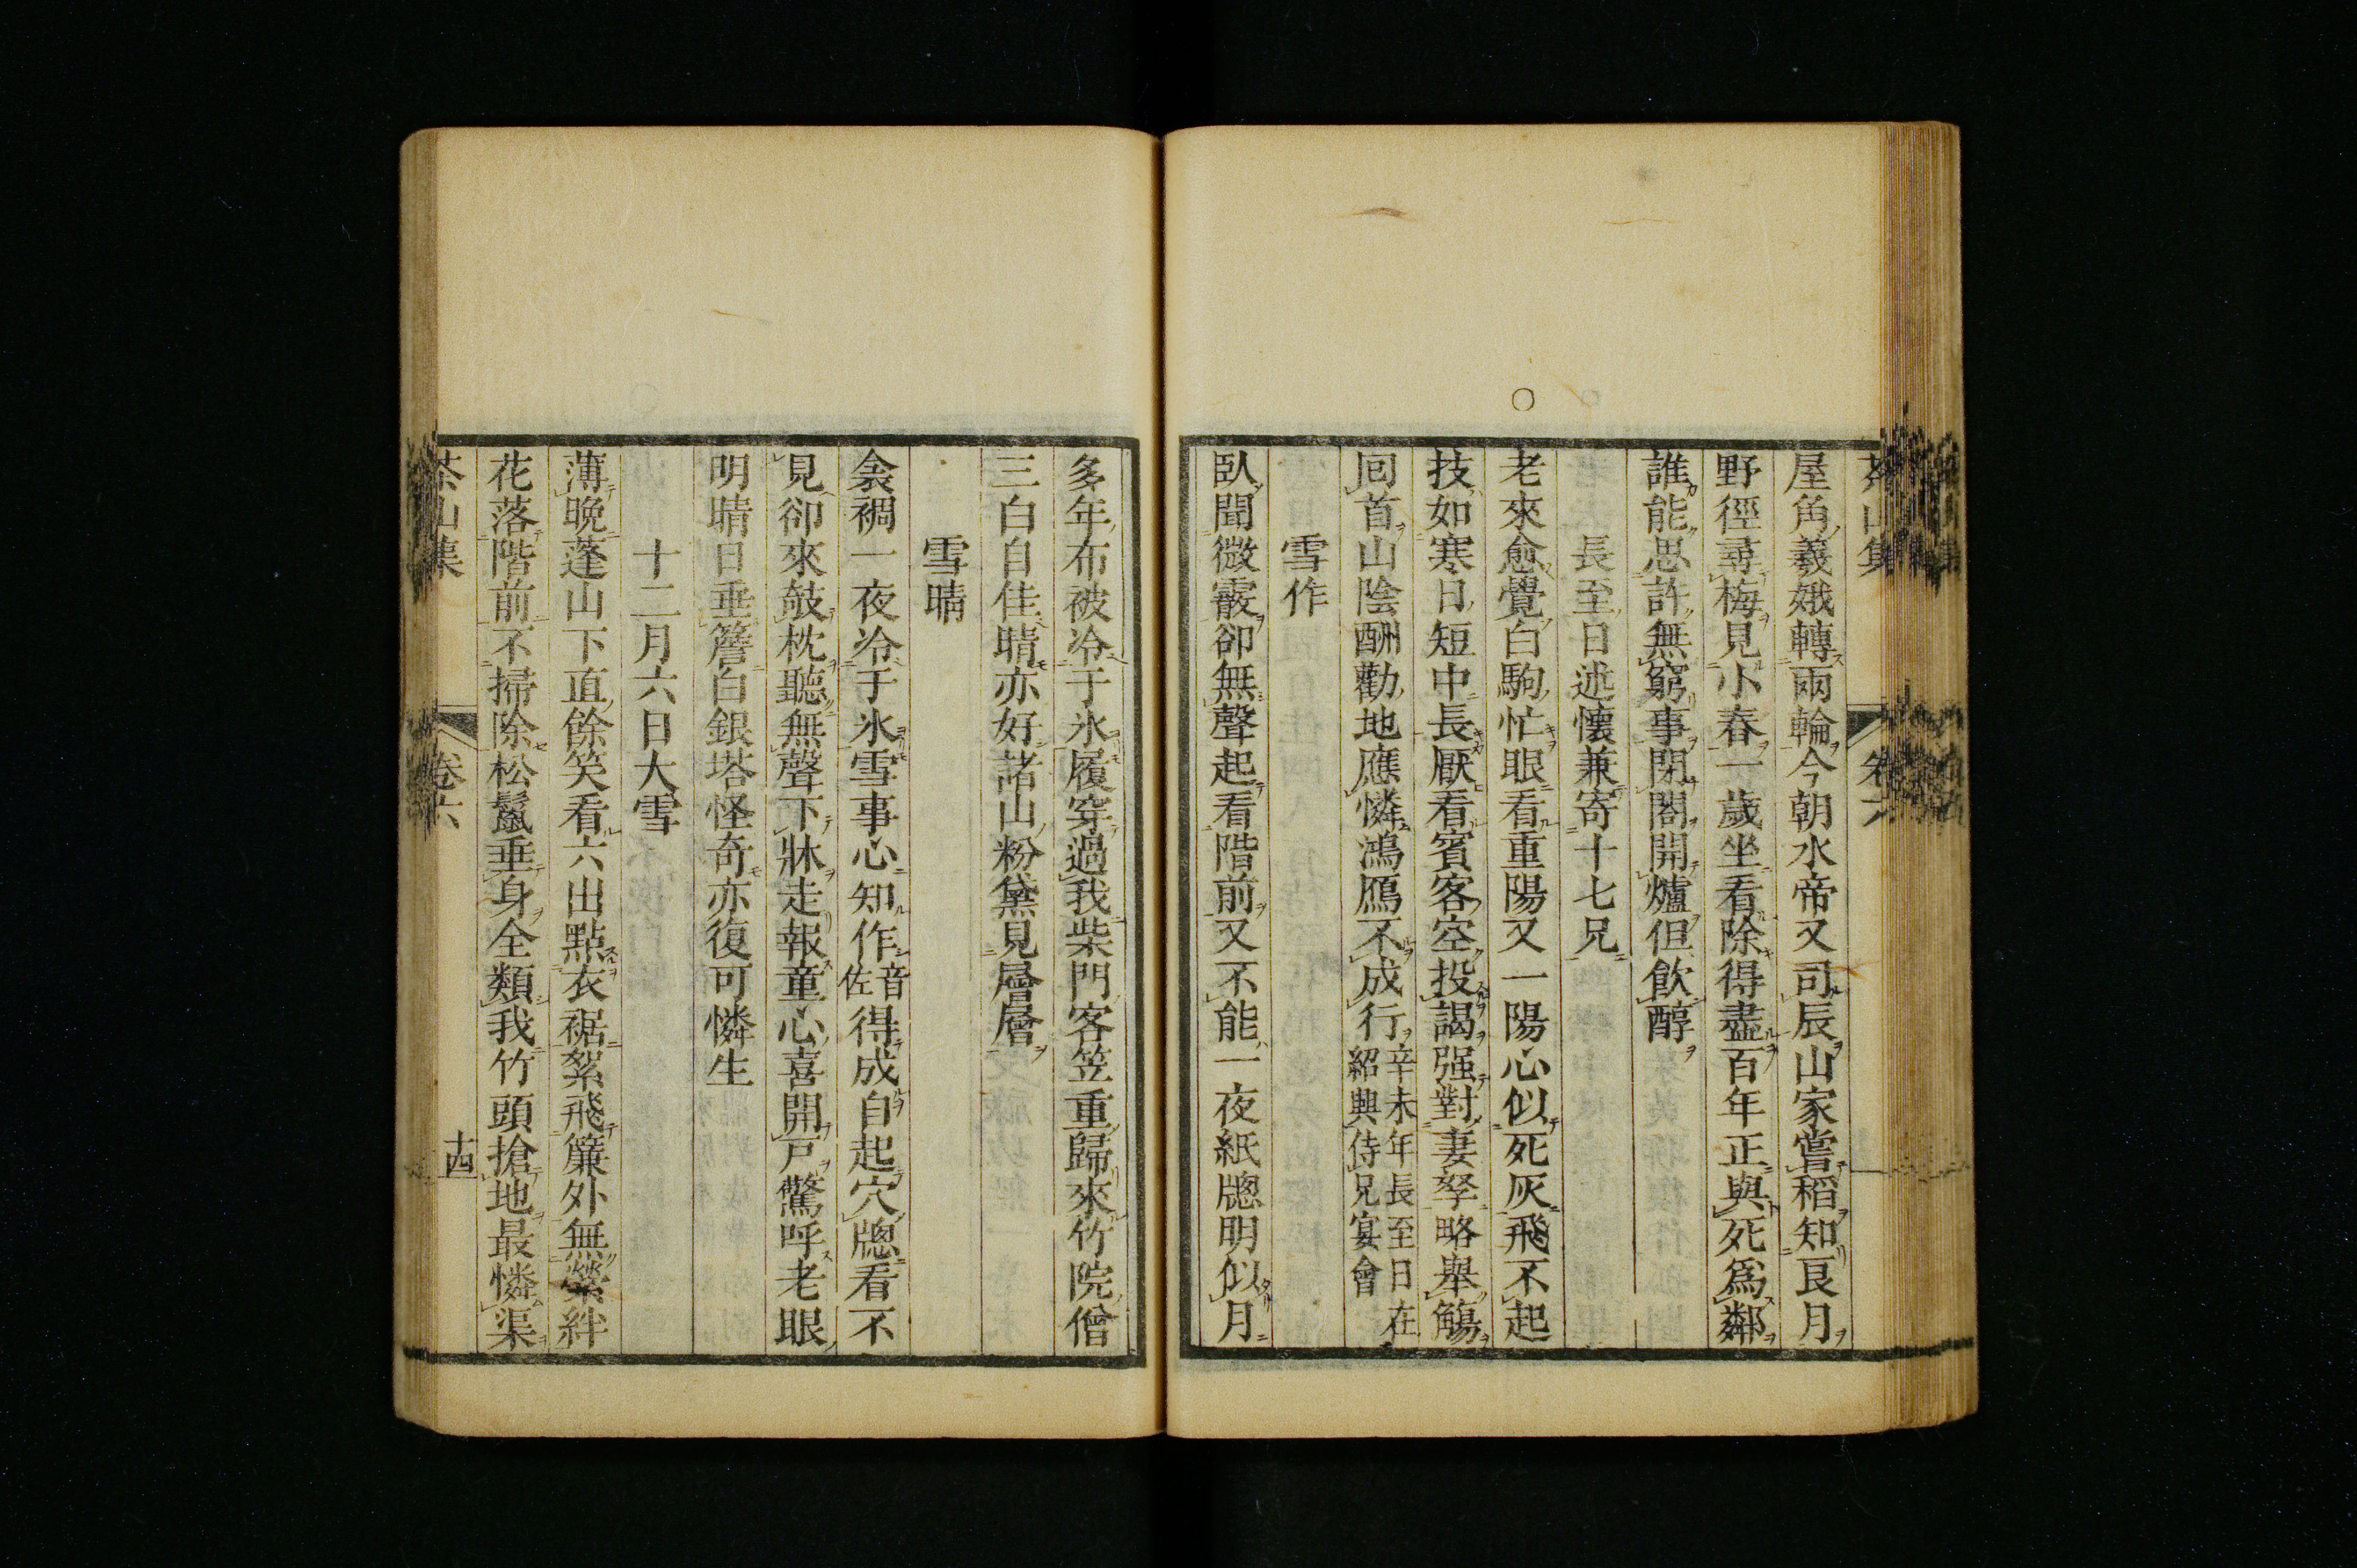 茶山集 卷六
屋角羲娥轉兩輪今朝水帝又司辰山家嘗稻知良月
野徑尋梅見小春一歲坐看除得盡百年正與死爲鄰
誰能思許無窮事閉閤開爐但飲醇
長至日述懷兼寄十七兄
老來愈覺白駒忙眼看重陽又一陽心似死灰飛不起
技如寒日短中長厭看賓客空投謁强對妻孥略舉觴
回首山陰酬勸地應憐鴻鴈不成行辛未年長至日在
紹興侍兄宴會
雪作
臥聞微霰卻無聲起看階前又不能一夜紙牕明似月
多年布被冷于氷履穿過我柴門客笠重歸來竹院僧
三白自佳晴亦好諸山粉黛見層層
雪晴
衾裯一夜冷于氷雪事心知作音佐得成自起穴牕看不
見卻來敧枕聽無聲下牀走報童心喜開戸驚呼老眼
明晴日垂簷白銀塔怪奇亦復可憐生
十二月六日大雪
薄晚蓬山下直餘笑看六出點衣裾絮飛簾外無縈絆
花落階前不掃除松鬣垂身全類我竹頭搶地最憐渠
茶山集 卷六 十四